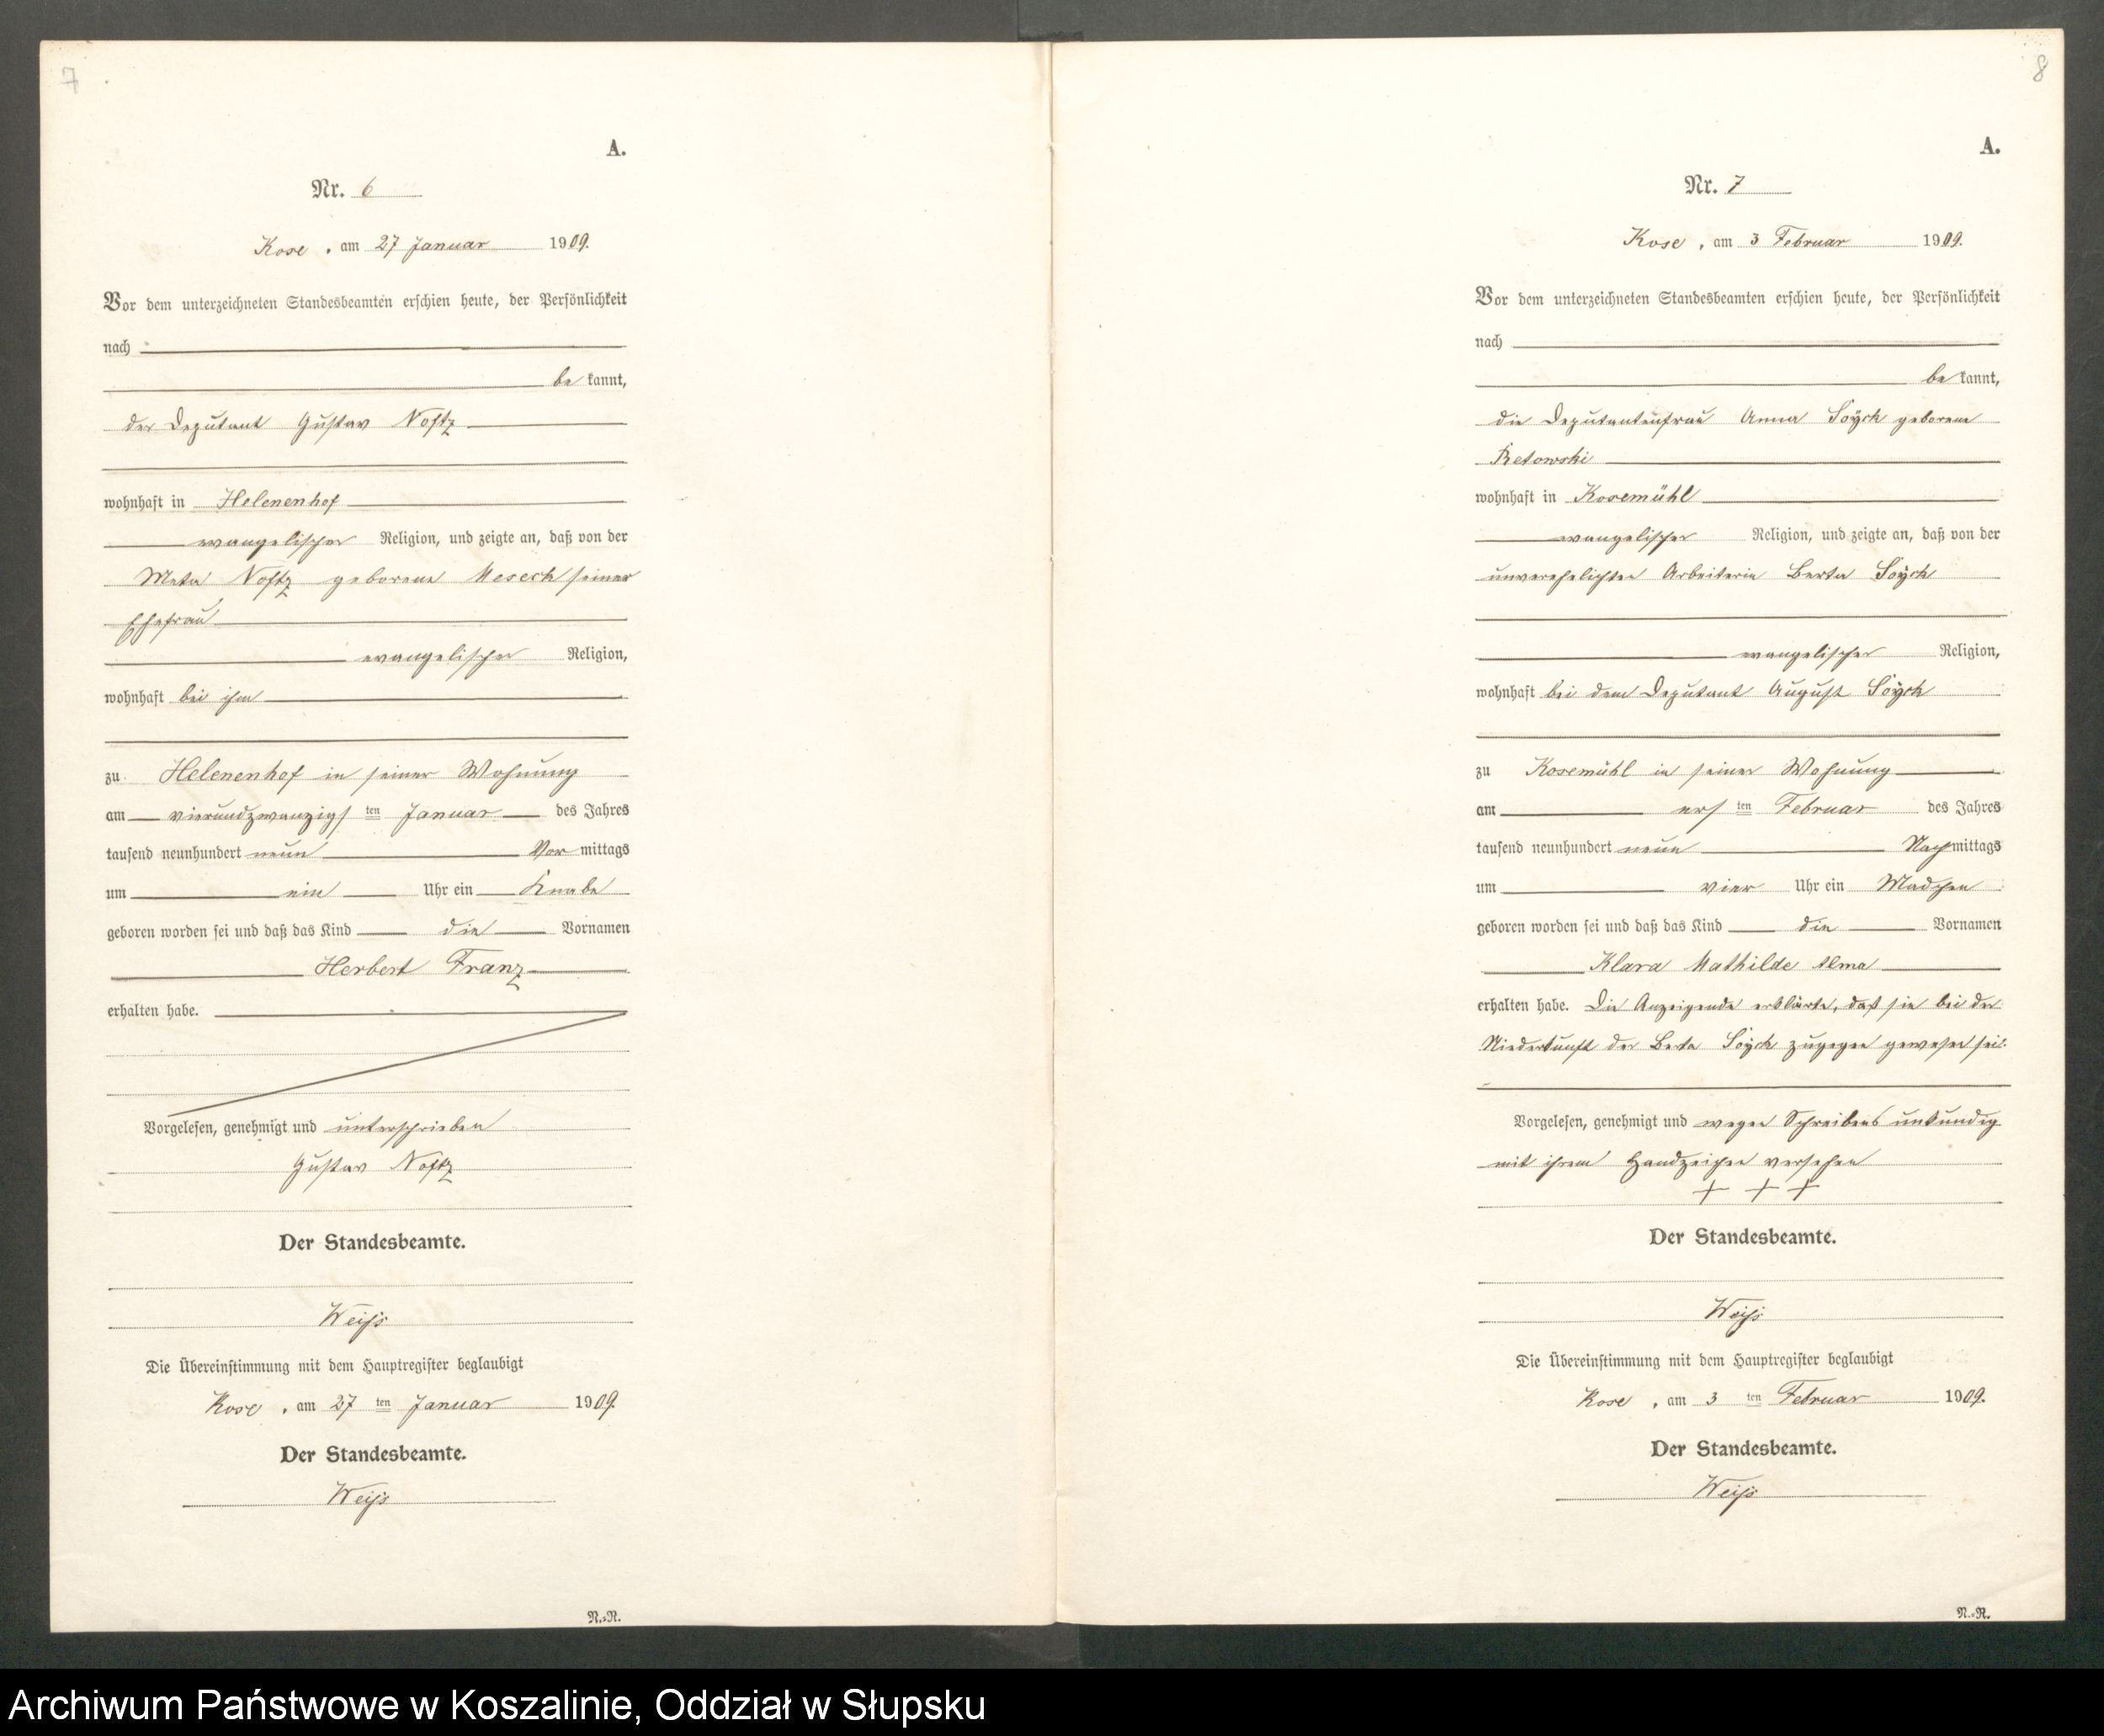 7
A.
Nr. 6
Kose, am 27 Januar 1909.
Vor dem unterzeichneten Standesbeamten erschien heute, der Persönlichkeit
nach
be kannt,
der Deputant Gustav Noftz
wohnhaft in Helenenhof
evangelischer Religion, und zeigte an, daß von der
Meta Noftz geborene Mesech seiner
Ehefrau
evangelischer Religion,
wohnhaft bei ihm
zu Helenenhof in seiner Wohnung
am vierundzwanzigs ten Januar des Jahres
tausend neunhundert neun Vor mittags
um ein Uhr ein Knabe
geboren worden sei und daß das Kind die Vornamen
Herbert Franz
erhalten habe.
Vorgelesen, genehmigt und unterschrieben
Gustav Noftz
Der Standesbeamte.
Weiss
Die Übereinstimmung mit dem Hauptregister beglaubigt
Kose, am 27 ten Januar 1909.
Der Standesbeamte.
Weiss
N.=R.
8
A.
Nr. 7
Kose, am 3 Februar 1909.
Vor dem unterzeichneten Standesbeamten erschien heute, der Persönlichkeit
nach
be kannt,
die Deputantenfrau Anna Söÿch geborene
Retowski
wohnhaft in Kosemühl
evangelischer Religion, und zeigte an, daß von der
unverehelichten Arbeiterin Berta Söÿch
evangelischer Religion,
wohnhaft bei dem Deputant August Söÿch
zu Kosemühl in seiner Wohnung
am ers ten Februar des Jahres
tausend neunhundert neun Nachmittags
um vier Uhr ein Madchen
geboren worden sei und daß das Kind die Vornamen
Klara Mathilde Alma
erhalten habe. Die Anzeigende erklärte, daß sie bei der
Niederkunft der Berta Söÿch zugegen gewesen sei.
Vorgelesen, genehmigt und wegen Schreibens unkundig
mit ihrem Handzeichen versehen
+ + +
Der Standesbeamte.
Weiss
Die Übereinstimmung mit dem Hauptregister beglaubigt
Kose, am 3 ten Februar 1909.
Der Standesbeamte.
Weiss
N.=R.
Archiwum Państwowe w Koszalinie, Oddział w Słupsku